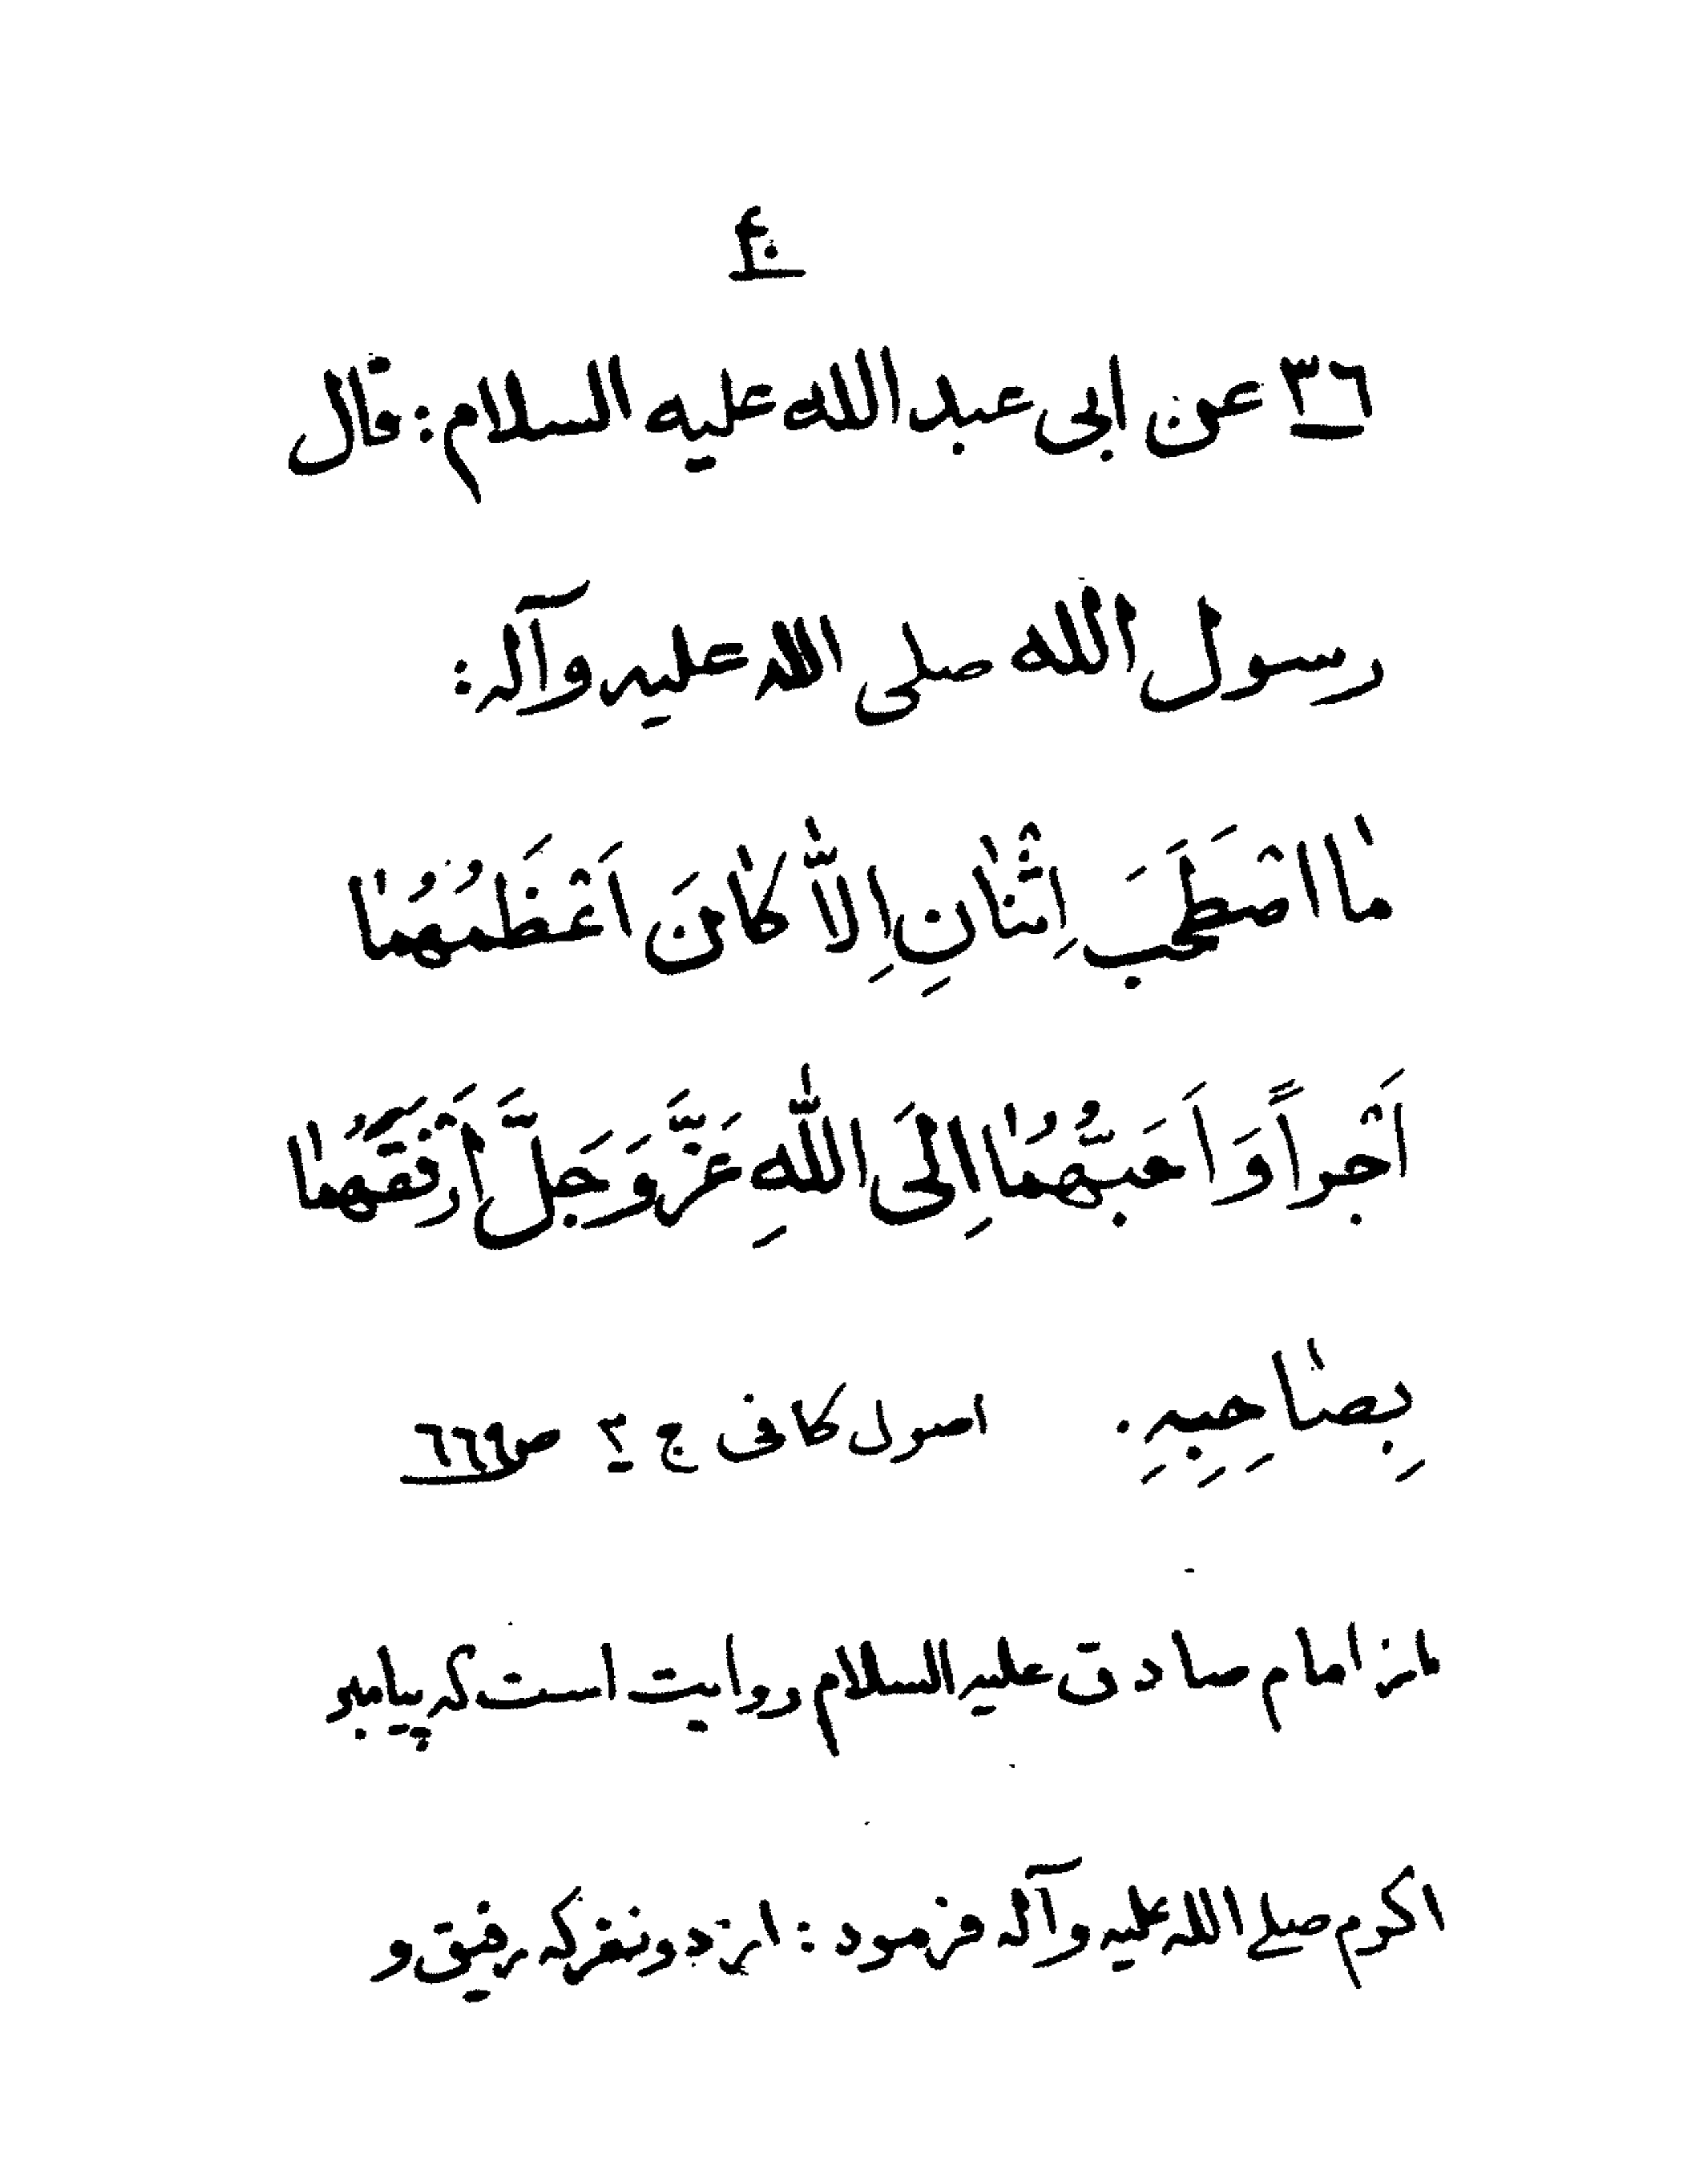 ۴۰
٣٦ عن ابی عبد الله علیه السلام : قال
رسول الله صلی الله علیه وآله :
مٰا اصْطَحَبَ اِثْنٰانِ اِلاّٰ کٰانَ اَعْظَمُهُمٰا
اَجْراً وَ اَحَبُّهُمٰا اِلَی اللّٰهِ عَزَّ وَ جَلَّ اَرْفَقَهُمٰا
بِصٰاحِبِهِ . اصول کافی ج ٢ ص ٦٦٩
از امام صادق علیه السلام روایت است که پیامبر
اکرم صلی الله علیه وآله فرمود : از دو نفر که رفیق و